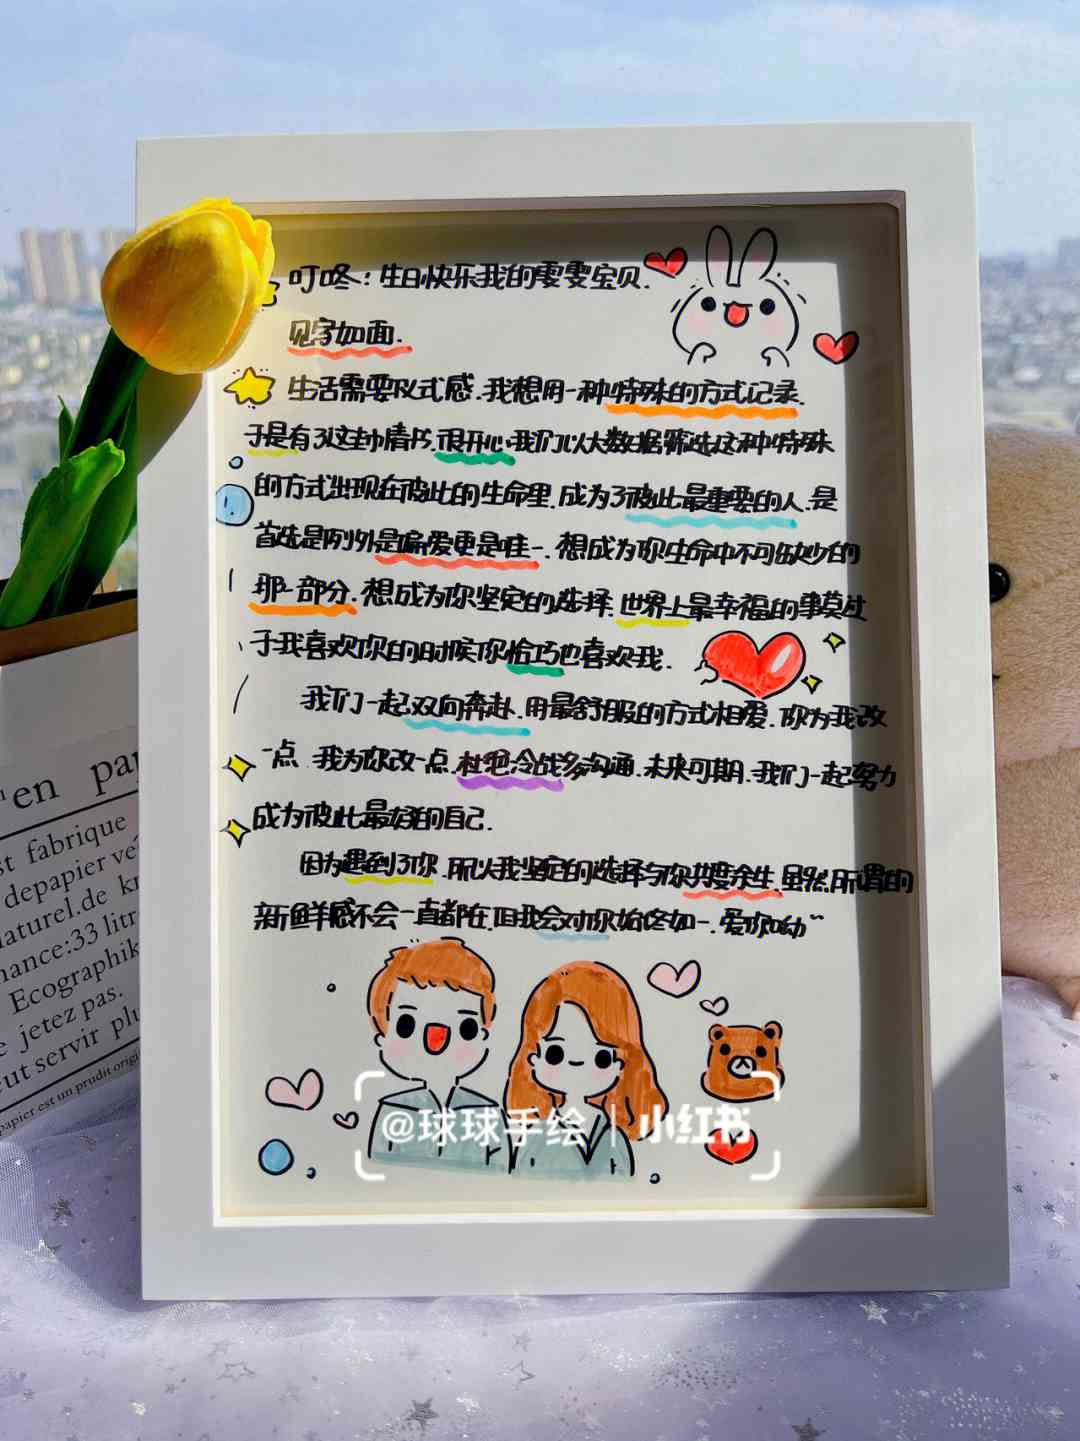 叮咚：生日快乐我的雯雯宝贝.
见字如面.
生活需要仪式感.我想用一种特殊的方式记录.
于是有了这封情书.很开心我们以大数据筛选这种特殊
的方式出现在彼此的生命里.成为了彼此最重要的人.是
首选是例外是偏爱更是唯一.想成为你生命中不可缺少的
那一部分.想成为你坚定的选择.世界上最幸福的事莫过
于我喜欢你的时候你恰巧也喜欢我.
我们一起双向奔赴.用最舒服的方式相爱.你为我改
一点.我为你改一点.杜绝冷战多沟通.未来可期.我们一起努力
成为彼此最好的自己.
因为遇到了你.所以我坚定的选择与你共度余生.虽然所谓的
新鲜感不会一直都在.但我会对你始终如一.爱你呦~
en pa
st fabrique
depapier vé
naturel.de kr
nance:33 litr
Ecographik
e jetez pas.
eut servir plu
papier est un prudit origi
@球球手绘 | 小红书